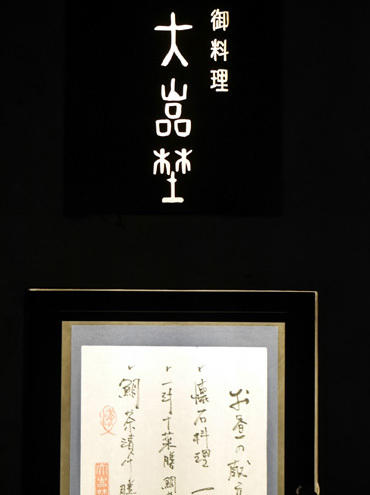 御料理
大嵓埜
お昼の献立
懐石料理 一
一汁十菜膳 鯛
鯛茶漬け膳
大嵓埜